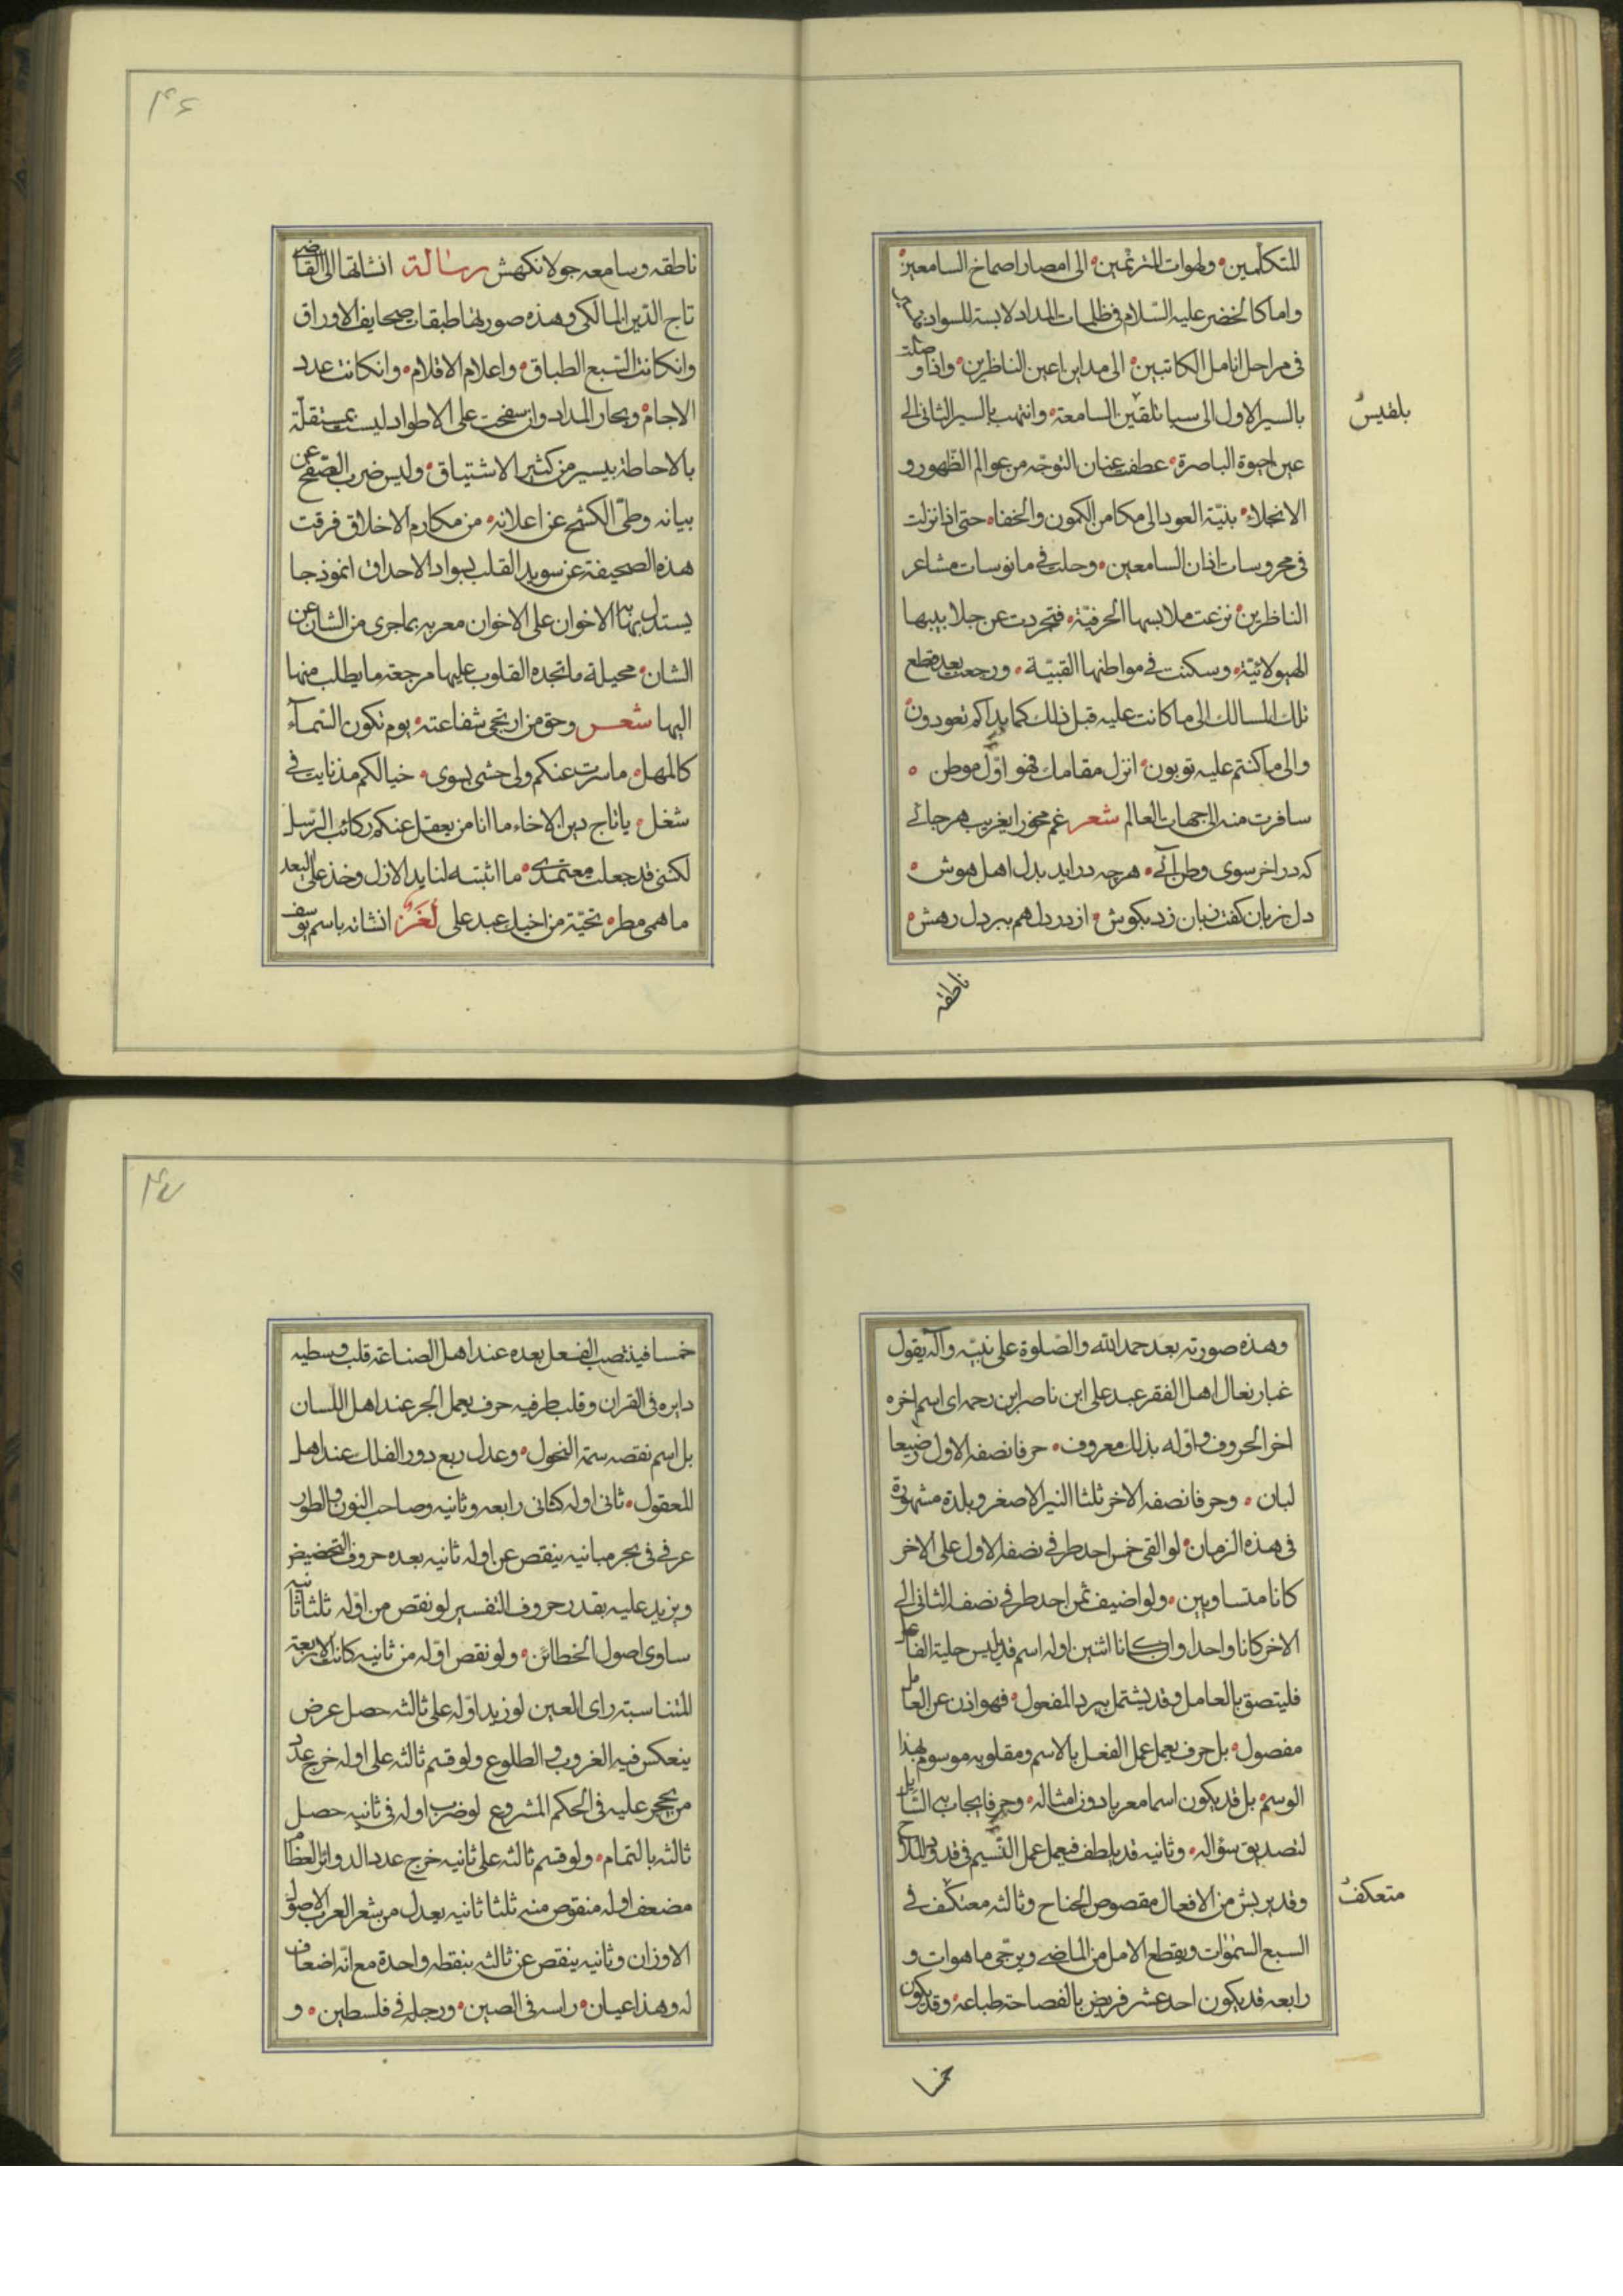 للمتكلّمين ولهوات المترنّمين الى امصار اصماخ السامعين
واما كالخضر عليه السّلام فى ظلمات المداد لابسة للسواد
فى مراحل انامل الكاتبين الى مداين اعين الناظرين واذا وصلت
بالسير الاول الى سبا تلقين السامعة وانتهت بالسير الثانى الى
عين حيوة الباصرة عطفت عنان التوجّه من عوالم الظهور و
الانجلاء بنيّة العود الى مكامن الكمون والخفاء حتى اذا نزلت
فى محروسات اذان السامعين وحلت فى مانوسات مشاعر
الناظرين نزعت ملابسها الحرفيّة فتجردت عن جلابيبها
الهيولائيّة وسكنت فى مواطنها القبيّة ورجعت بعد قطع
تلك المسالك الى ما كانت عليه قبل ذلك كما بداكم تعودون
والى ما كنتم عليه توبون انزل مقامك فهو اوّل موطن
سافرت منه الى جهات العالم شعر غم مخور ايغريب هرجائى
كه در اخر سوى وطن آئى هرچه در ايد بدل اهل هوش
دل بزبان كفت زبان زد بكوش از در دل هم ببر دل رهش
بلقيس
ناطقه
۴۶
ناطقه وسامعه جولانكهش رسالة انشاتها الى القاضى
تاج الدّين المالكى وهذه صورتها طبقات صحايف الاوراق
وانكانت السّبع الطباق واعلام الاقلام وانكانت عدد
الاجام وبحار المداد وان سفحت على الاطواد ليست بمستقلّة
بالاحاطة بيسير من كثير الاشتياق وليس ضرب الصّفح عن
بيانه وطىّ الكشح عن اعلانه من مكارم الاخلاق فرقت
هذه الصحيفة عن سويد القلب بسواد الاحداق انموذجا
يستدل بها الاخوان على الاخوان معربه بما جرى من الشان عن
الشان محيلة ما تجده القلوب عليها مرجعة ما يطلب منها
اليها شعر وحق من ارتجى شفاعته يوم تكون السّمآء
كالمهل ما سرت عنكم ولى حشى بسوى خيالكم مذ نايت فى
شغل يا تاج دين الاخاء ما انا من يعقل عنكم ركائب الرّسل
لكننى قد جعلت معتمدى ما اثبته لنا يد الازل وخذ على البعد
ما همى مطر تحيّة من اخيك عبد على لغز انشاته باسم يوسف
وهذه صورته بعد حمد الله والصّلوة على نبيّه وآله يقول
غبار نعال اهل الفقر عبد على ابن ناصر ابن رحمه اى اسم اخره
اخر الحروف واوله بذلك معروف حرفا نصفه الاول رضيعا
لبان وحرفا نصفه الاخر ثلثا النير الاصغر وبلدة مشهورة
فى هذه الزمان لو القى خمس احد طرفى نصفه الاول على الاخر
كانا متساويين ولو اضيف ثمن احد طرفى نصفه الثانى الى
الاخر كانا واحدا وان كانا اثنين اوله اسم قد يلبس حلية الفاعل
فليتصق بالعامل وقد يشتمل ببرد المفعول فهو اذن عن العامل
مفصول بل حرف يعمل عمل الفعل بالاسم ومقلوبه موسوم بهذا
الوسم بل قد يكون اسما معربا دون امثاله وحرفا يجاب به السّايل
لتصديق سؤاله وثانيه قد يلطف فيعمل عمل النّسيم فى قدود الملاح
وقد يريش من الافعال مقصوص الجناح وثالثه معتكف فى
السبع السّموات ويقطع الامل من الماضى ويرجّى ما هوات و
رابعه قد يكون احد عشر فريض بالفصاحة طباعه وقد يكون
متعكف
خمسا
۴۷
خمسا فينتصب الفعل بعده عند اهل الصناعة قلب وسطيه
دايره فى القران وقلب طرفيه حرف يعمل الجر عند اهل اللّسان
بل اسم نقصه سمة النحول وعدل ربع دور الفلك عند اهل
المعقول ثانى اوله كثانى رابعه وثانيه وصاحب النون والطور
عرفى فى بحر مبانيه ينقص عن اوله ثانيه بعده حروف التحضيض
ويزيد عليه بقدر حروف التفسير لو نقص من اوّله ثلثا ثانيه
ساوى اصول الخطائن ولو نقص اوّله من ثانيه كانت الاربعة
المتناسبة راى العين لو زيد اوّله على ثالثه حصل عرض
ينعكس فيه الغروب والطلوع ولو قسم ثالثه على اوله خرج عدد
من يحجر عليه فى الحكم المشروع لو ضرب اوله فى ثانيه حصل
ثالثه بالتمام ولو قسم ثالثه على ثانيه خرج عدد الدوائر العظام
مضعف اوله منقوص منه ثلثا ثانيه بعدل من شعر العرب الاصول
الاوزان وثانيه ينقص عن ثالثه بنقطه واحدة مع انّه اضعاف
له وهذا عيان راسه فى الصين ورجله فى فلسطين و